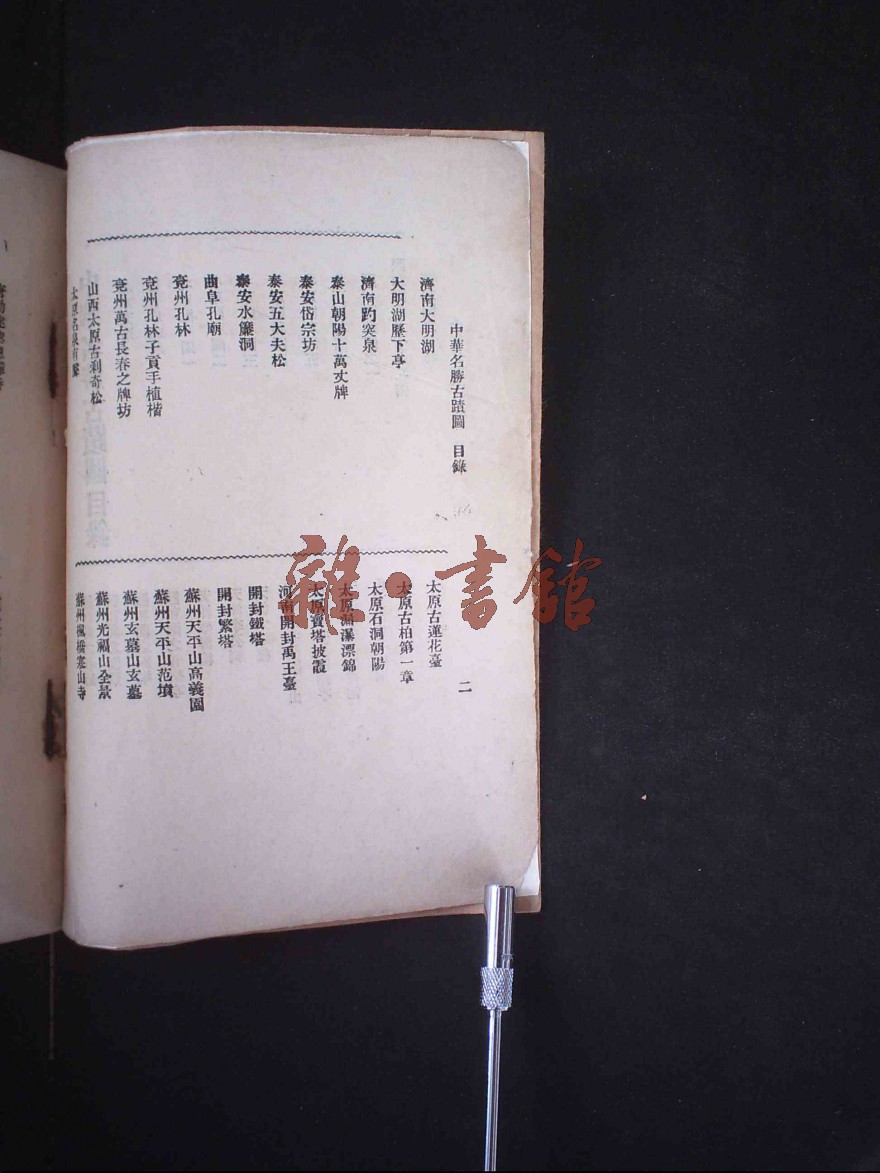 中華名勝古蹟圖 目錄
二
濟南大明湖
大明湖歷下亭
濟南趵突泉
泰山朝陽十萬丈牌
泰安岱宗坊
泰安五大夫松
泰安水簾洞
曲阜孔廟
兗州孔林
兗州孔林子貢手植楷
兗州萬古長春之牌坊
山西太原古剎奇松
太原名泉有
太原古蓮花臺
太原古柏第一章
太原石洞朝陽
太原瀑漂錦
太原寶塔披霞
河南開封禹王臺
開封鐵塔
開封繁塔
蘇州天平山高義園
蘇州天平山范墳
蘇州玄墓山玄墓
蘇州光福山全景
蘇州楓橋寒山寺
雜·書館